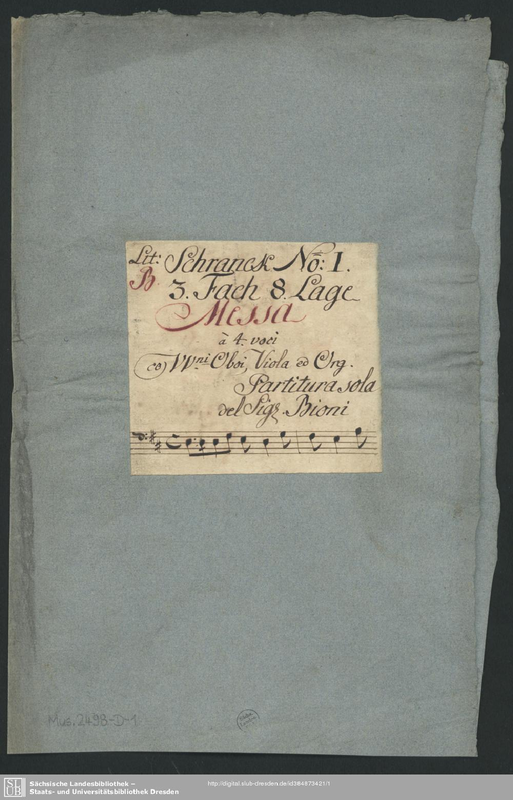 Lit: Schranck No: I.
B 3. Fach 8. Lage
Messa
à 4. voci
co VV.ni Oboi, Viola ed Org.
Partitura sola
del Sigr. Bioni
Mus. 2498-D-1
SLUB
Sächsische Landesbibliothek –
Staats- und Universitätsbibliothek Dresden
http://digital.slub-dresden.de/id384873421/1